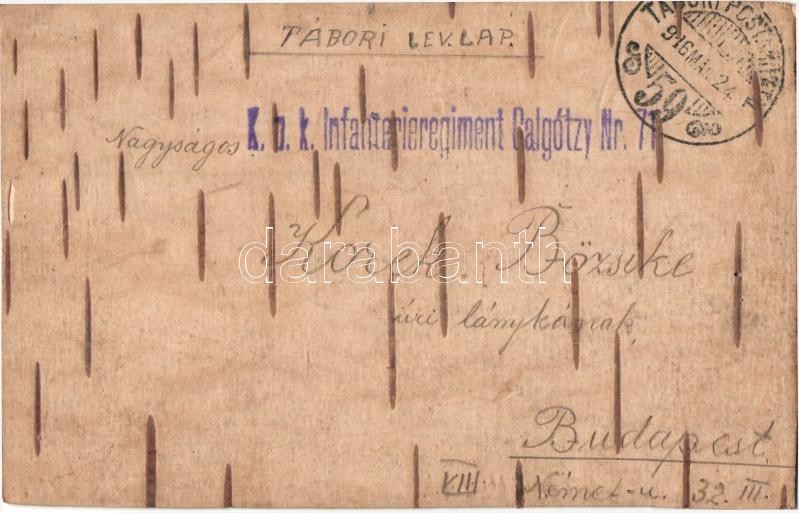 TÁBORI LEV. LAP.
TÁBORI POSTAHIVATAL
916 MÁJ. 24.
59
K. u. k. Infanterieregiment Galgótzy Nr. 71
Nagyságos
Korek Bözsike
úri lánykának
Budapest
VIII. Német-u. 32. III.
darabanth